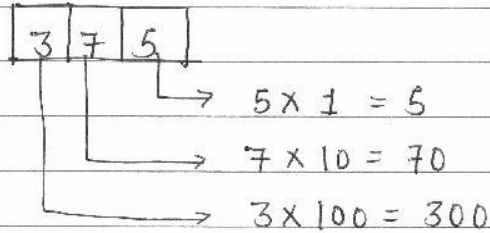 3 7 5
5 × 1 = 5
7 × 10 = 70
3 × 100 = 300